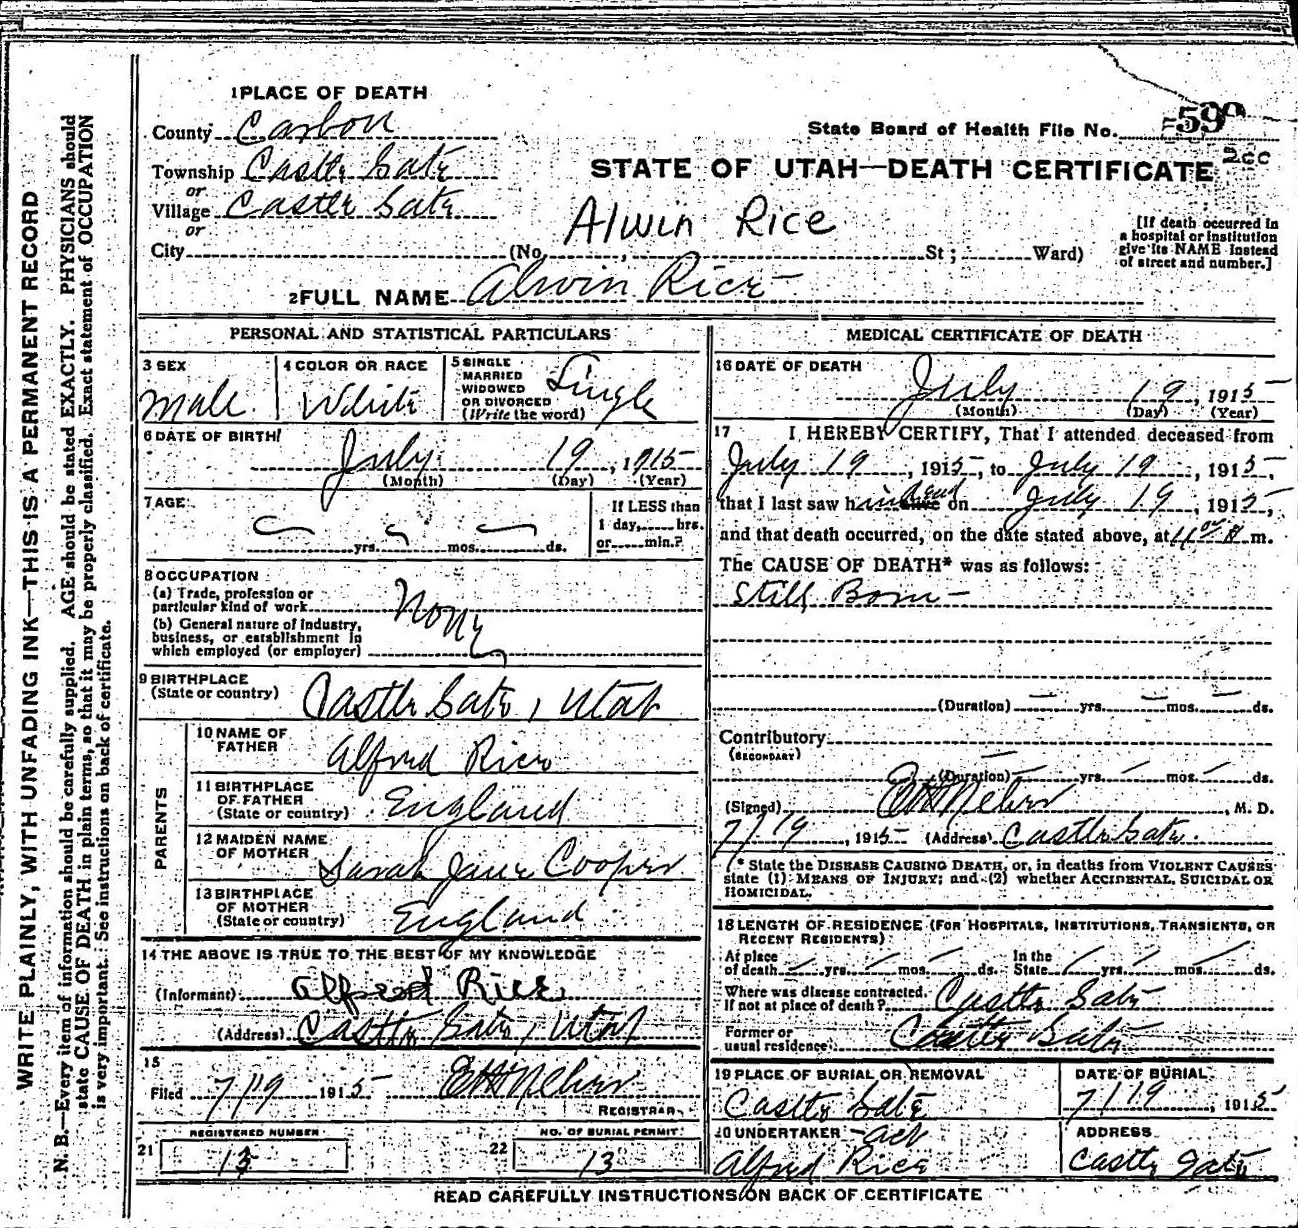 WRITE PLAINLY, WITH UNFADING INK—THIS IS A PERMANENT RECORD
N. B.—Every item of information should be carefully supplied. AGE should be stated EXACTLY. PHYSICIANS should
state CAUSE OF DEATH in plain terms, so that it may be properly classified. Exact statement of OCCUPATION
is very important. See instructions on back of certificate.
1 PLACE OF DEATH
County Carbon
Township Castle Gate
or
Village Castle Gate
or
City (No. , St; Ward)
State Board of Health File No. 59
STATE OF UTAH—DEATH CERTIFICATE
200
Alwin Rice
[If death occurred in
a hospital or institution
give its NAME instead
of street and number.]
2 FULL NAME Alwin Rice
PERSONAL AND STATISTICAL PARTICULARS
3 SEX
Male
4 COLOR OR RACE
White
5 SINGLE
MARRIED
WIDOWED
OR DIVORCED
(Write the word)
Single
6 DATE OF BIRTH
July 19, 1915
(Month) (Day) (Year)
7 AGE
yrs. mos. ds.
If LESS than
1 day, hrs.
or min.?
8 OCCUPATION
(a) Trade, profession or
particular kind of work
(b) General nature of industry,
business, or establishment in
which employed (or employer)
None
9 BIRTHPLACE
(State or country) Castle Gate, Utah
PARENTS
10 NAME OF
FATHER
Alfred Rice
11 BIRTHPLACE
OF FATHER
(State or country) England
12 MAIDEN NAME
OF MOTHER
Sarah Jane Cooper
13 BIRTHPLACE
OF MOTHER
(State or country) England
14 THE ABOVE IS TRUE TO THE BEST OF MY KNOWLEDGE
(Informant) Alfred Rice
(Address) Castle Gate, Utah
15
Filed 7/19 1915
REGISTRAR
REGISTERED NUMBER
21 13
NO. OF BURIAL PERMIT
22 13
MEDICAL CERTIFICATE OF DEATH
16 DATE OF DEATH
July 19, 1915
(Month) (Day) (Year)
17 I HEREBY CERTIFY, That I attended deceased from
July 19, 1915, to July 19, 1915,
that I last saw him dead on July 19, 1915,
and that death occurred, on the date stated above, at m.
The CAUSE OF DEATH* was as follows:
Still Born—
(Duration) yrs. mos. ds.
Contributory
(SECONDARY)
(Duration) yrs. mos. ds.
(Signed) M. D.
7/19, 1915 (Address) Castle Gate.
(* State the DISEASE CAUSING DEATH, or, in deaths from VIOLENT CAUSES
state (1) MEANS OF INJURY; and (2) whether ACCIDENTAL, SUICIDAL OR
HOMICIDAL.
18 LENGTH OF RESIDENCE (FOR HOSPITALS, INSTITUTIONS, TRANSIENTS, OR
RECENT RESIDENTS)
At place
of death yrs. mos. ds.
In the
State yrs. mos. ds.
Where was disease contracted,
If not at place of death? Castle Gate
Former or
usual residence Castle Gate
19 PLACE OF BURIAL OR REMOVAL
Castle Gate
DATE OF BURIAL
7/19, 1915
20 UNDERTAKER—act
Alfred Rice
ADDRESS
Castle Gate
READ CAREFULLY INSTRUCTIONS ON BACK OF CERTIFICATE